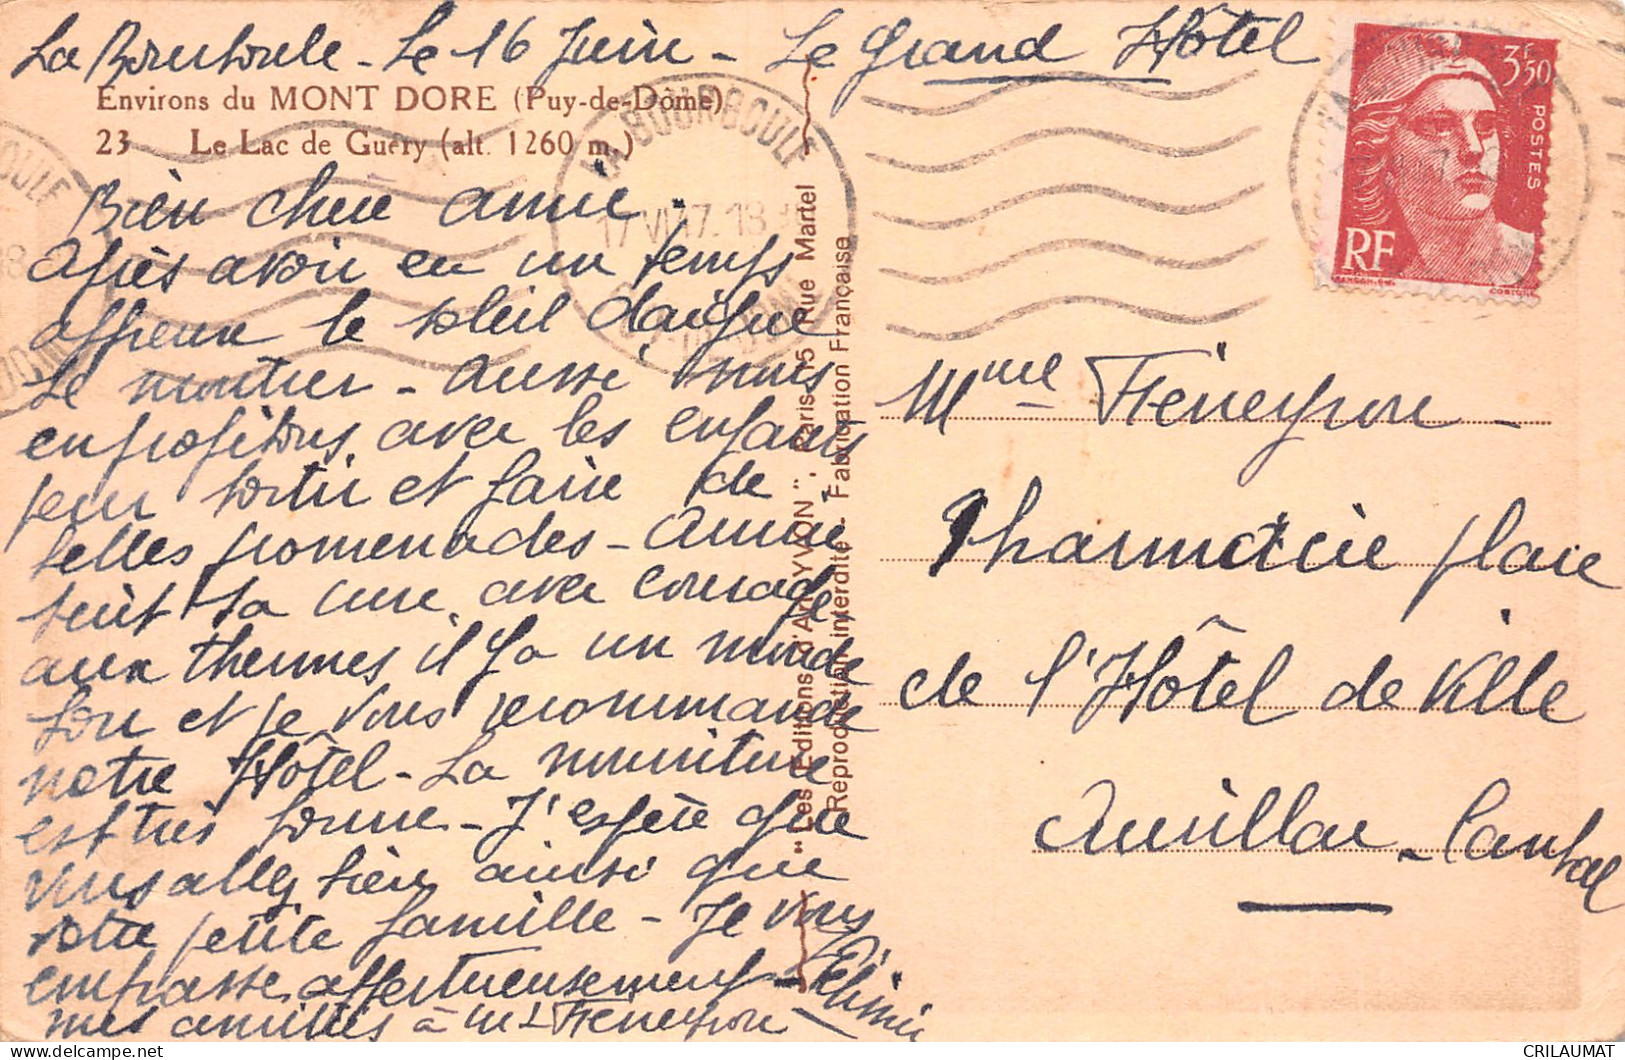 La Bourboule - Le 16 Juin - Le Grand Hôtel
Environs du MONT DORE (Puy-de-Dôme)
23 Le Lac de Guéry (alt. 1260 m.)
Bien chère amie.
Après avoir eu un temps
affreux le soleil daigne
se montrer - aussi nous
en profitons avec les enfants
pour sortir et faire de
belles promenades - Annie
suit sa cure avec courage
aux thermes il y a un monde
fou et je vous recommande
notre Hôtel - La nourriture
est très bonne - J'espère que
vous allez bien ainsi que
votre petite famille - Je vous
embrasse affectueusement -
mes amitiés à Mr Fféneyrou
"Les Editions d'Art YVON", Paris-15 Rue Martel
Reproduction interdite - Fabrication Française
LA BOURBOULE
17 VI 47. 18
PUY-DE-DOME
3F50
POSTES
RF
GANDON.DEL.
CORTOT.SC.
Mme Fféneyrou -
Pharmacie place
de l'Hôtel de Ville
Aurillac - Cantal
CRILAUMAT